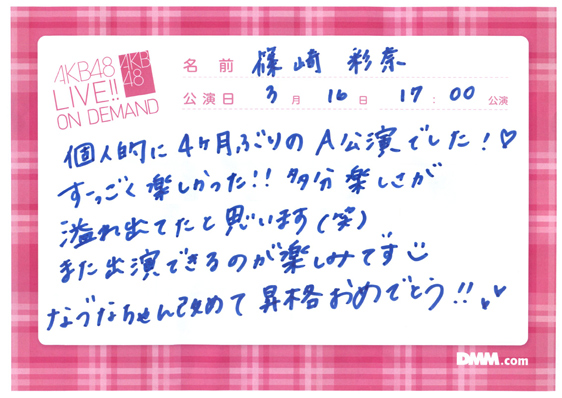 AKB48
LIVE!!
ON DEMAND
AKB
48
名前 篠崎 彩奈
公演日 3月16日 17:00公演
個人的に4ヶ月ぶりのA公演でした！♡
すーっごく楽しかった！！多分楽しさが
溢れ出てたと思います(笑)
また出演できるのが楽しみです
なづなちゃん改めて昇格おめでとう！！
DMM.com